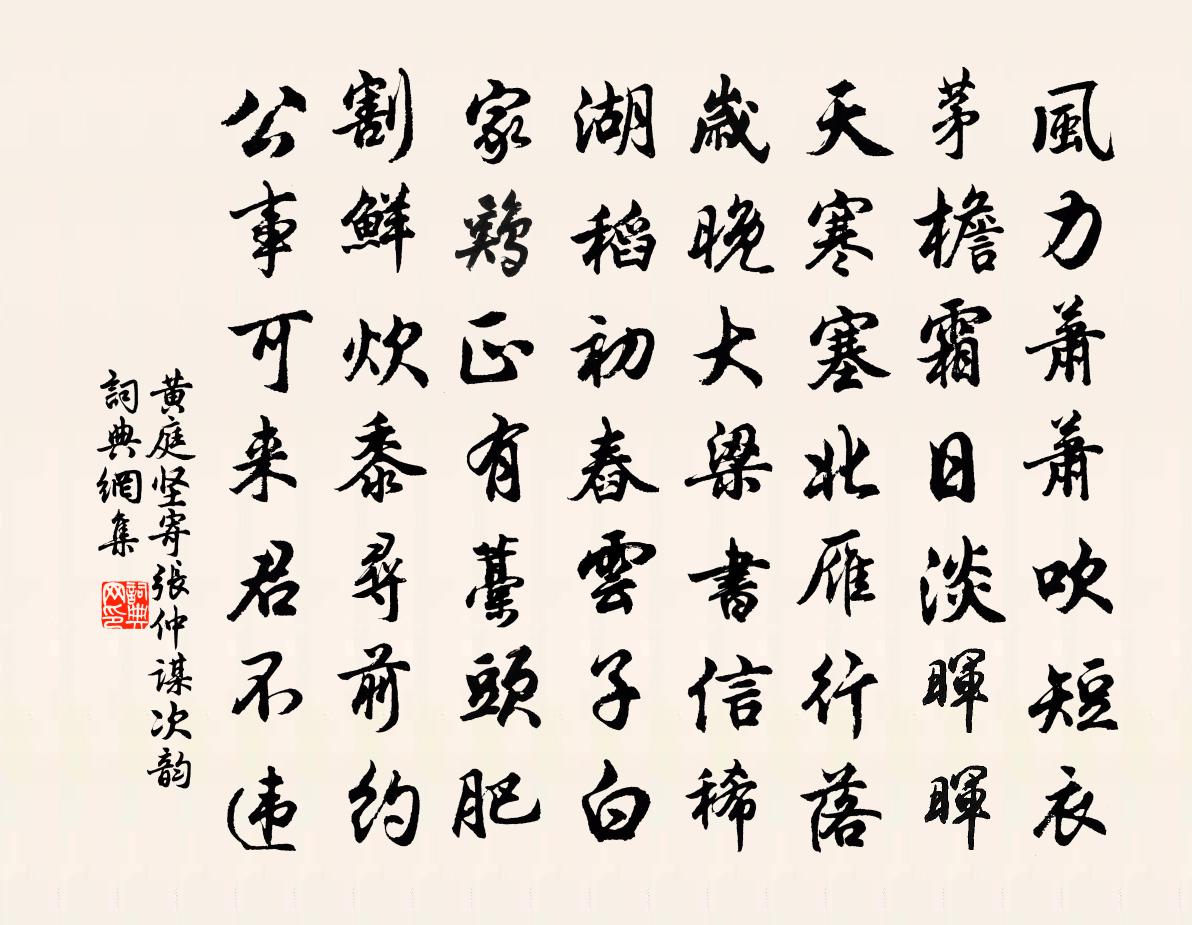 風力蕭蕭吹短衣
茅檐霜日淡暉暉
天寒塞北雁行落
歲晚大梁書信稀
湖稻初舂雲子白
家鷄正有藁頭肥
割鮮炊黍尋前約
公事可来君不违
黄庭坚寄張仲謀次韵
詞典網集
詞典网印